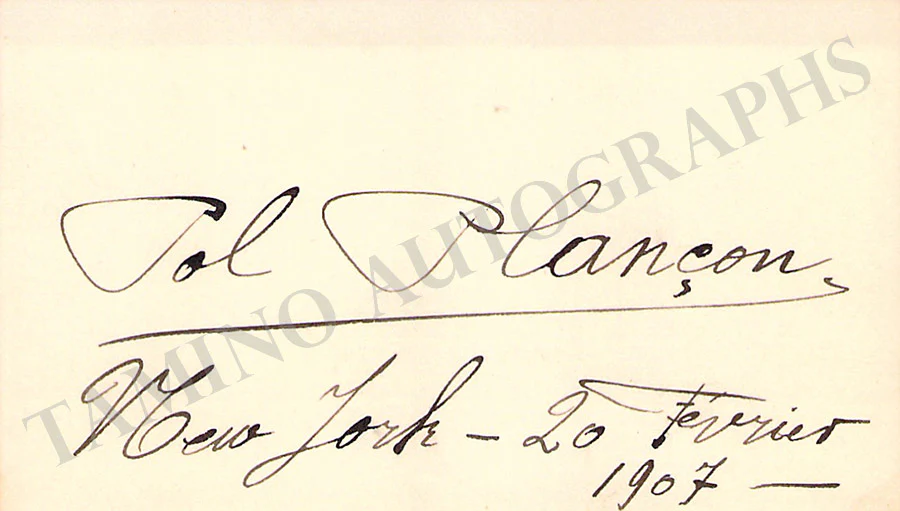 Pol Plançon
New York – 20 Février
1907 —
TAMINO AUTOGRAPHS